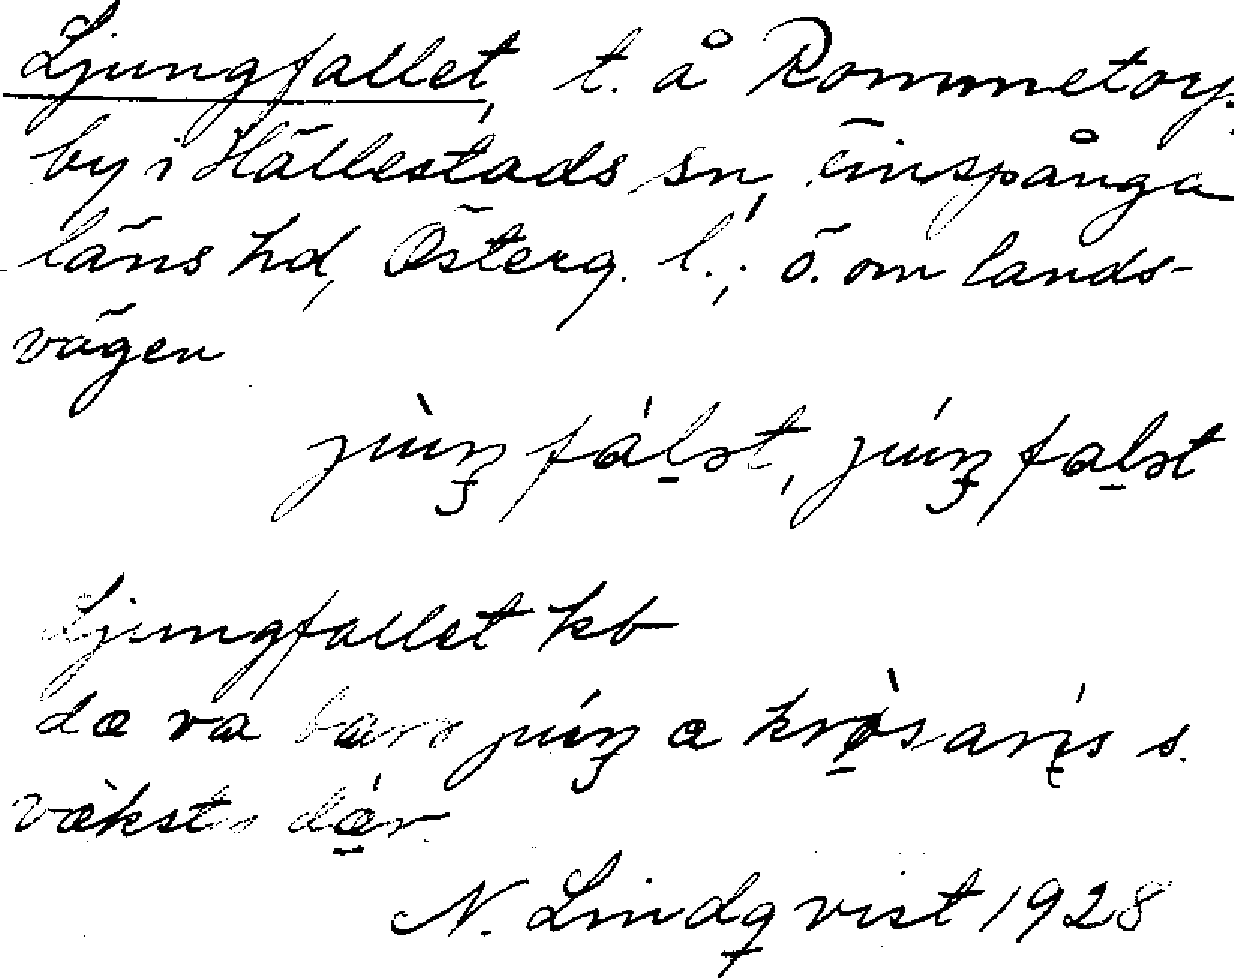 Ljungfallet, t. å Rommetorps
by i Hällestads sn, Finspånga
läns hd, Österg. l.; ö. om lands-
vägen
jùŋfál̠ət, júŋfal̠ət
Ljungfallet kb
dæ va bara júŋ a krø̀saris s.
vækstə dǽr.
N. Lindqvist 1928